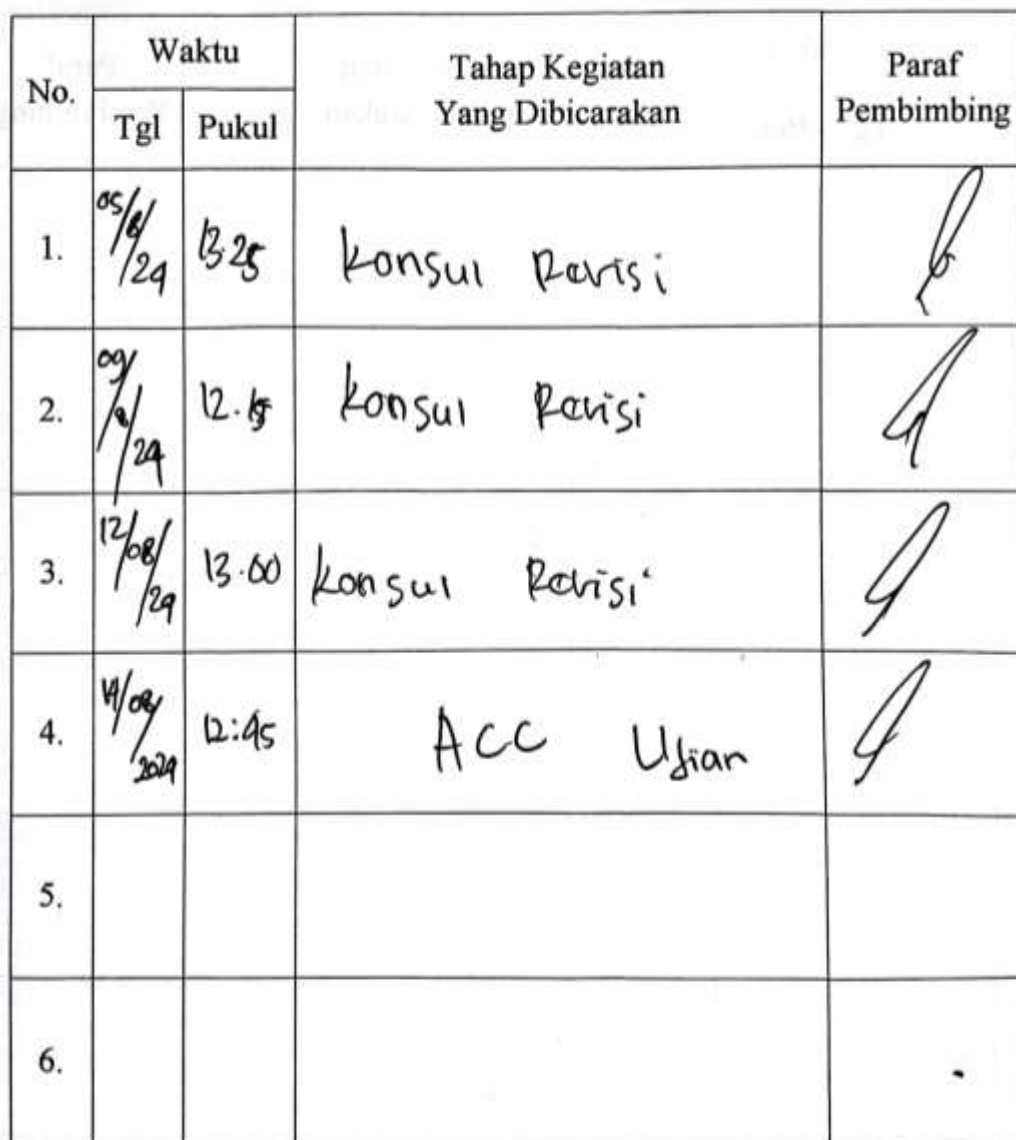 No.
Waktu
Tgl
Pukul
Tahap Kegiatan
Yang Dibicarakan
Paraf
Pembimbing
1.
05/8/24
13.25
Konsul Revisi
2.
09/8/24
12.15
Konsul Revisi
3.
12/08/24
13.00
Konsul Revisi
4.
14/08/2024
12:45
ACC Ujian
5.
6.